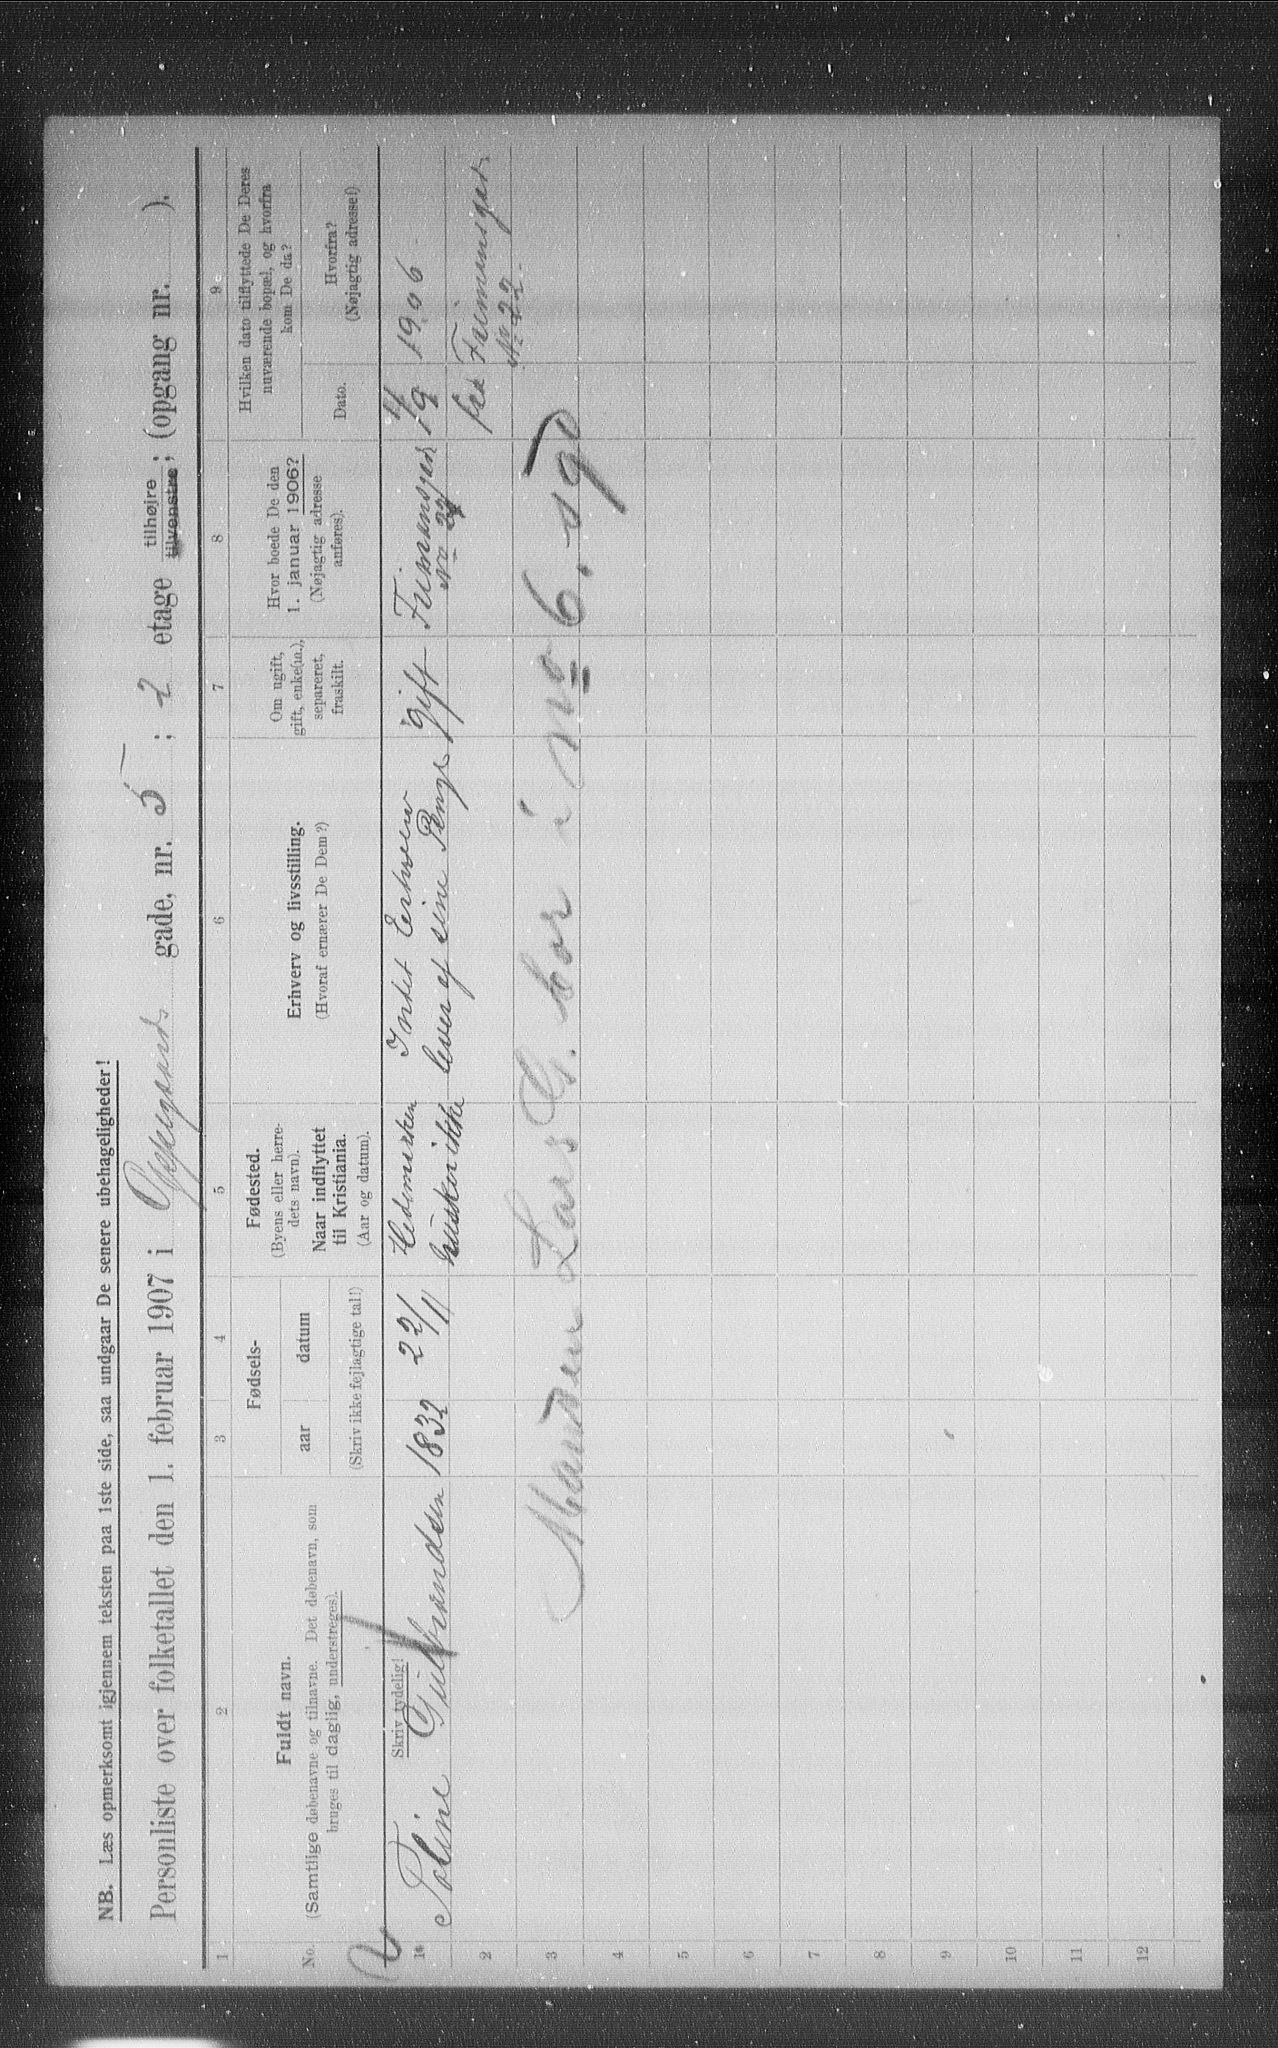 NB. Læs opmerksomt igjennem teksten paa 1ste side, saa undgaar De senere ubehageligheder!
Personliste over folketallet den 1. februar 1907 i gade, nr. 5; 2 etage tilhøjre tilvenstre; (opgang nr. ).
1 2 3 4 5 6 7 8 9
No.
Fuldt navn.
(Samtlige døbenavne og tilnavne. Det døbenavn, som
bruges til daglig, understreges).
Fødsels-
aar datum
(Skriv ikke fejlagtige tal!)
Fødested.
(Byens eller herre-
dets navn).
Naar indflyttet
til Kristiania.
(Aar og datum).
Erhverv og livsstilling.
(Hvoraf ernærer De Dem?)
Om ugift,
gift, enke(m.),
separeret,
fraskilt.
Hvor boede De den
1. januar 1906?
(Nøjagtig adresse
anføres).
Hvilken dato tilflyttede De Deres
nuværende bopæl, og hvorfra
kom De da?
Dato.
Hvorfra?
(Nøjagtig adresse!)
Skriv tydelig!
1 Poline Gulbrandsen 1832 22/11 Hedemarken Intet Erhverv gift 1906
husker ikke lever af sine Penge No fra
2
No 22
3 Manden Lars G. bor i no 6, s g
4
5
6
7
8
9
10
11
12